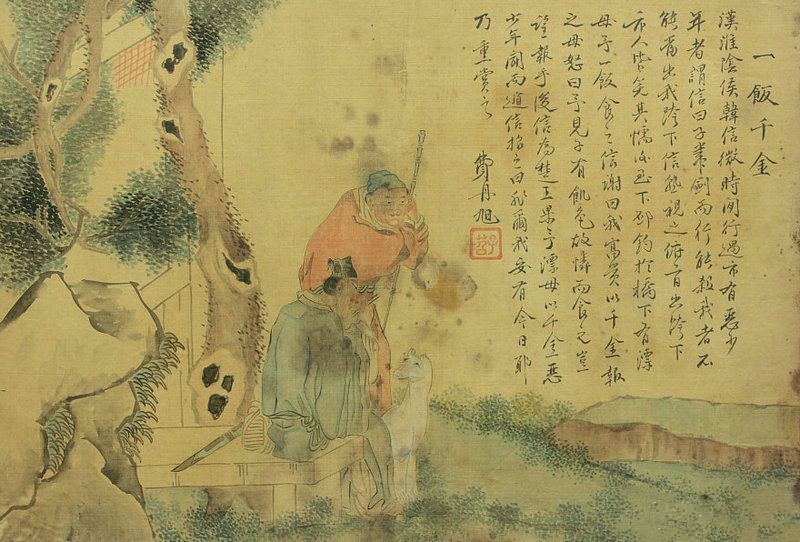 一飯千金
漢淮陰侯韓信微時閒行過市有惡少
年者謂信曰子帶劍而行能殺我者不
能當出我跨下信熟視之俯首出跨下
市人皆笑其懦至下邳釣於橋下有漂
母予一飯食之信謝曰我富貴以千金報
之母怒曰予見子有飢色故憐而食之豈
望報乎後信為楚王果予漂母以千金惡
少年聞而逃信招之曰非爾我安有今日耶
乃重賞之 費丹旭